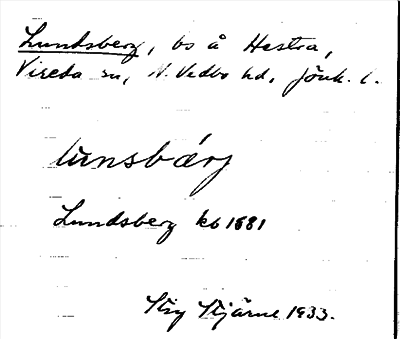 Lundsberg, bs å Hestra,
Vireda sn, N. Vedbo hd, Jönk. l.
lunsbærj
Lundsberg kb 1881
Stig Stjärne 1933.